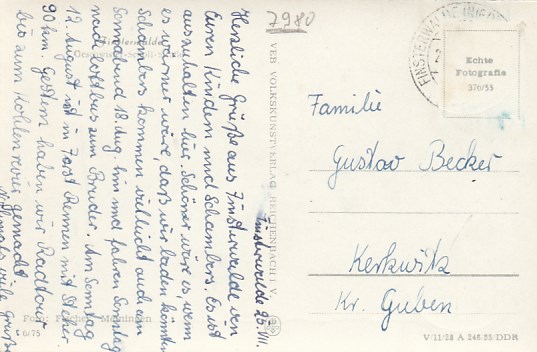 7980
Finsterwalde 25. VII.
Herzliche Grüße aus Finsterwalde von
Euren Kindern und Schambers. Es ist
auszuhalten hier. Schöner wäre es, wenn
es wärmer wäre, daß wir baden könnten.
Schambers kommen vielleicht auch am
Sonnabend 18. Aug. hin und fahren Sonntag
nach Cottbus zum Bruder. Am Sonntag
12. August ist in Forst Rennen mit Steher.
90 km. Gestern haben wir Radtour
bis zum gemacht
Nochmals viele Grüße
Foto: Meiningen
6/75
VEB VOLKSKUNSTVERLAG REICHENBACH I. V.
FINSTERWALDE
Echte
Fotografie
376/55
Familie
Gustav Becker
Kerkwitz
Kr. Guben
V/11/28 A 246/55/DDR